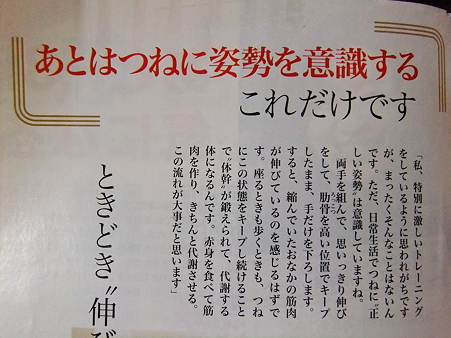 あとはつねに姿勢を意識する
これだけです
「私、特別に激しいトレーニング
をしているように思われがちです
が、まったくそんなことはないん
です。ただ、日常生活でつねに〝正
しい姿勢〟は意識していますね。
両手を組んで、思いっきり伸び
をして、肋骨を高い位置でキープ
したまま、手だけを下ろします。
すると、縮んでいたおなかの筋肉
が伸びているのを感じるはずで
す。座るときも歩くときも、つね
にこの状態をキープし続けること
で〝体幹〟が鍛えられて、代謝する
体になるんです。赤身を食べて筋
肉を作り、きちんと代謝させる。
この流れが大事だと思います」
ときどき〝伸び